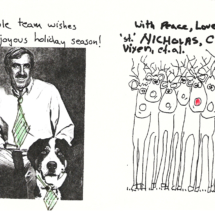 le team wishes
joyous holiday season!
With Peace, Love
'st.' NICHOLAS, C
Vixen, et.al.